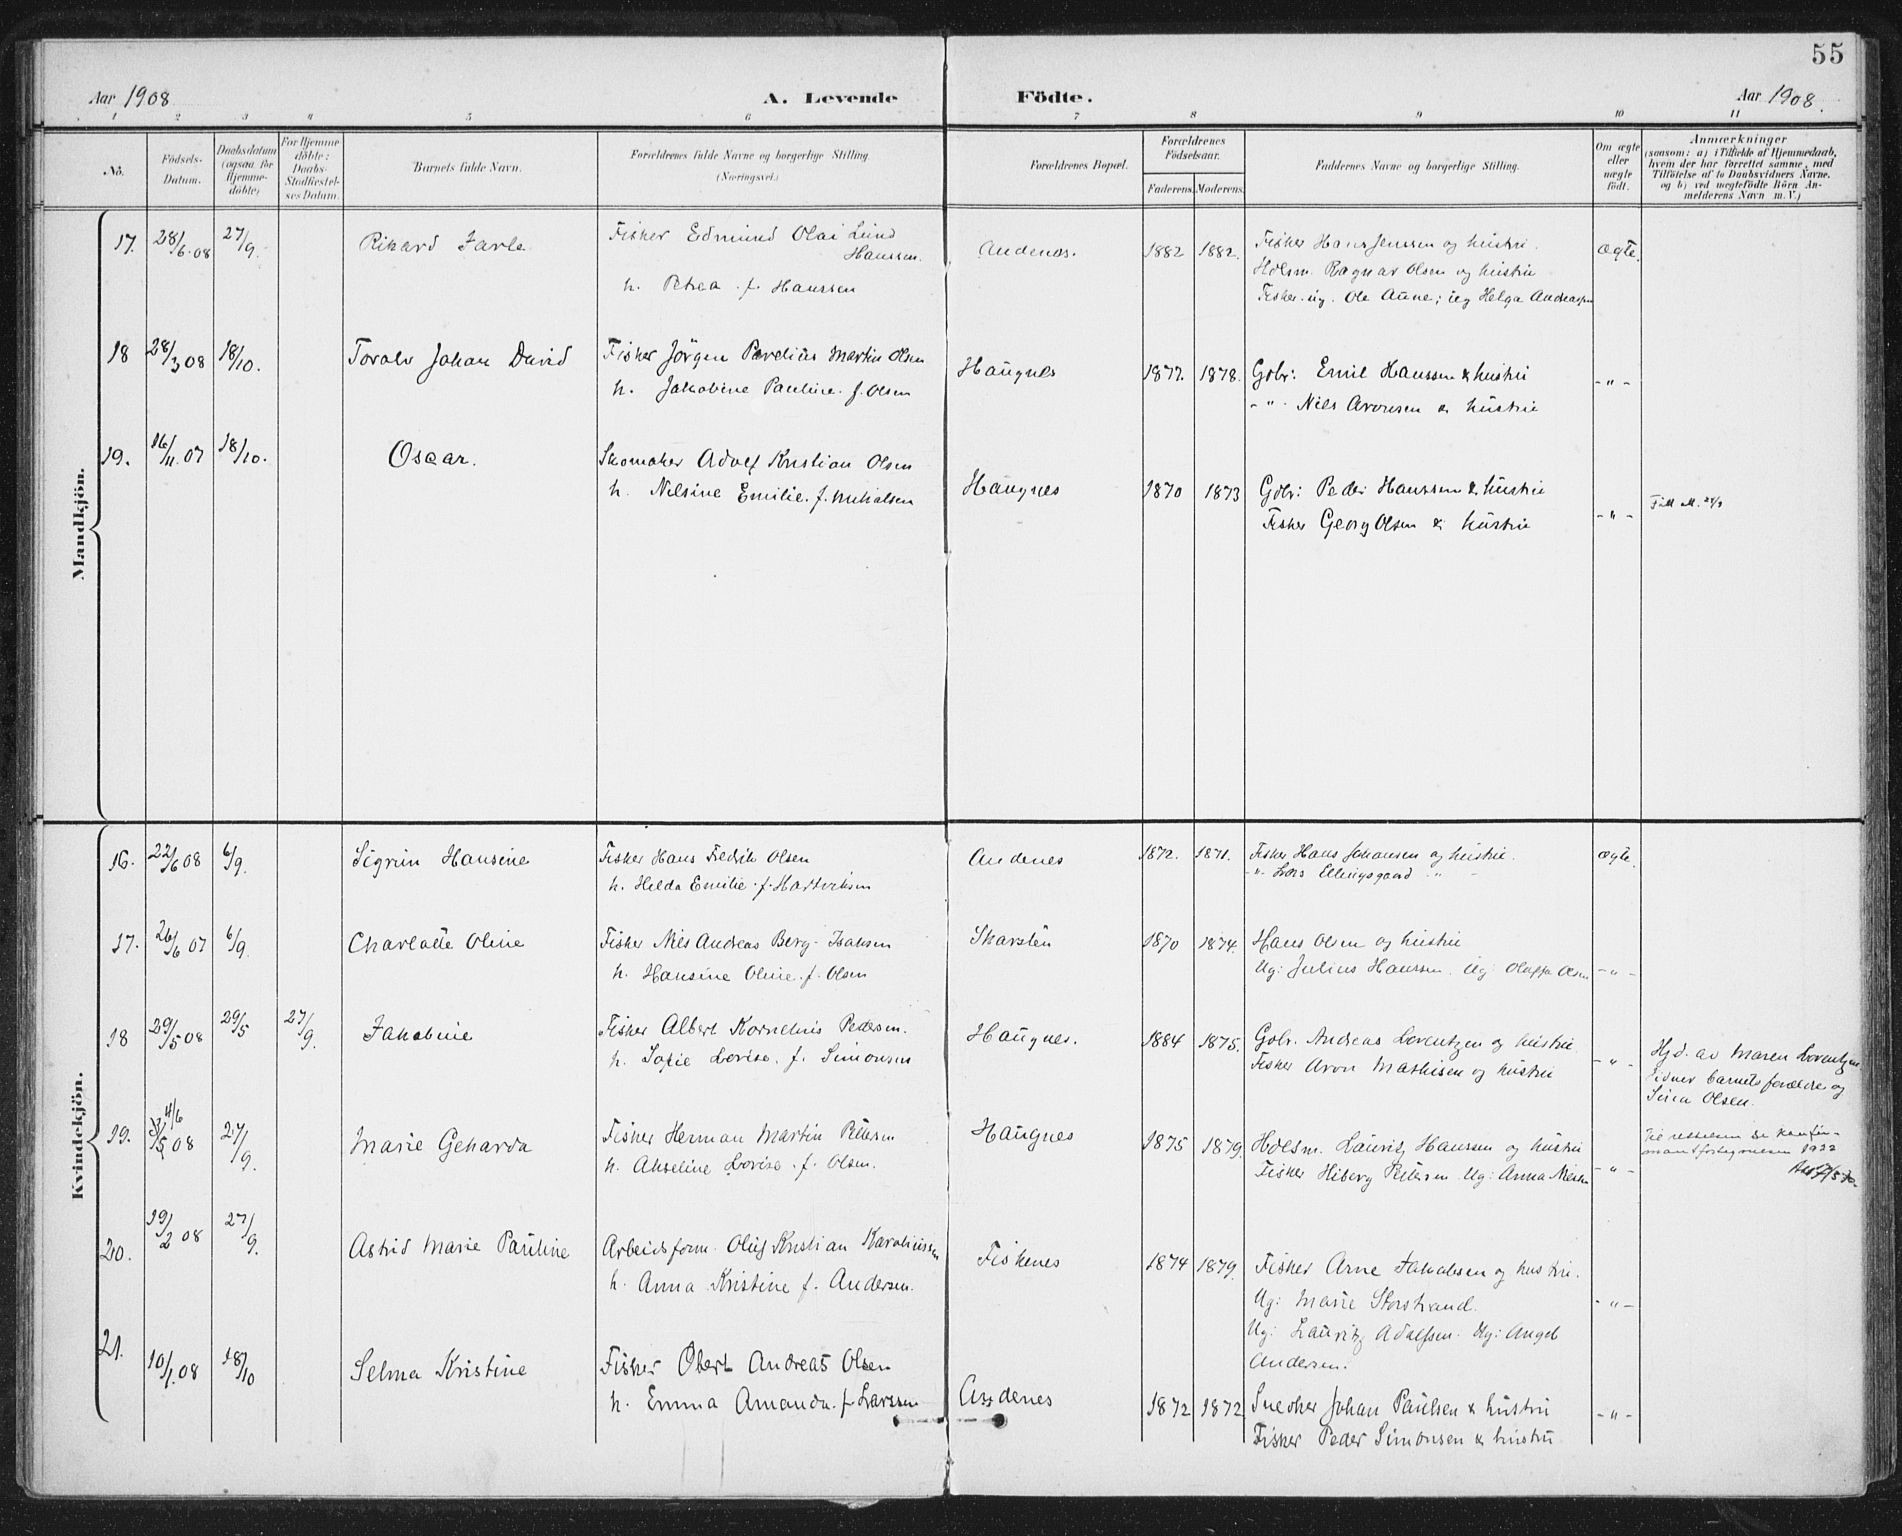 55
Aar 1908 A. Levende Födte. Aar 1908.
1 2 3 4 5 6 7 8 9 10 11
No.
Födsels-
Datum.
Daabsdatum
(ogsaa for
Hjemme-
döbte)
For Hjemme
döbte:
Daabs-
Stadfæstel-
ses Datum.
Barnets fulde Navn.
Forældrenes fulde Navne og borgerlige Stilling.
(Næringsvei.)
Forældrenes Bopæl.
Forældrenes
Födselsaar.
Faderens. Moderens.
Faddernes Navne og borgerlige Stilling.
Om ægte
eller
uægte
født.
Anmærkninger
(saasom: a) i Tilfælde af Hjemmedaab,
hvem der har forrettet samme, med
Tilföielse af to Daabsvidners Navne.
og b) ved uægtefödte Börn An-
melderens Navn m. V.)
Mandkjön.
17. 28/6.08 27/9. Rikard Jarle Fisker Edmund Olai Lund
Hanssen.
h. Petrea f. Hanssen
Andenes. 1882 1882. Fisker Hans Jenssen og hustru.
Holsm. Ragnar Olsen og hustru
Fisker ug. Ole Aune; ug Helga Andreassen
Ægte.
18 28/3 08 18/10. Toralv Johan David Fisker Jörgen Parelius Martin Olsen
h. Jakobine Pauline f. Olsen
Haugnes 1877. 1878. Gbr: Emil Hanssen & hustru
- " - Niels Aronsen & hustru
- " -
19. 16/11.07 18/10. Oscar. Skomaker Adolf Kristian Olsen
h. Nilsine Emilie f. Mikalsen
Haugnes 1870 1873 Gbr: Peder Hanssen & hustru
Fisker Georg Olsen & hustru
- " -
Kvindekjön.
16. 22/6 08 6/9. Sigrun Hansine Fisker Hans Fredrik Olsen
h. Hilda Emilie f. Hartviksen
Andenes 1872. 1871. Fisker Hans Johansen og hustru.
- " - Lars Ellingsgaard "
Ægte.
17. 26/6 07 6/9. Charlotte Oline Fisker Nils Andreas Berg-Isaksen
h. Hansine Oline f. Olsen
Skarsten 1870 1874. Hans Olsen og hustru
Ug: Julius Hanssen. Ug: Oluffa Olsen
- " -
18 29/5 08 29/5 27/9. Jakobine Fisker Albert Kornelius Pedersen.
h. Sofie Lovise f. Simonsen
Haugnes. 1884 1875. Gbr. Andreas Lorentzen og hustru
Fisker Aron Mathisen og hustru
- " -
Hjd. av Maren Lorentzen
Vidner barnets forældre og
Sina Olsen.
19. 4/6 08 27/9. Marie Geharda Fisker Herman Martin Petersen
h. Akseline Lovise f. Olsen.
Haugnes 1875 1879. Holsm. Lauritz Hanssen og hustru
Fisker Hiberg Petersen. Ug: Anna
- " -
20. 19/2 08 27/9. Astrid Marie Pauline Arbeidsform. Oluf Kristian Karoliussen
h. Anna Kristine f. Andersen.
Fiskenes 1874 1879. Fisker Arne Jakobsen og hustru.
Ug: Marie Storstrand.
Ug: Lauritz Adolfsen. Ug: Angel
Andersen.
- " -
21. 10/1.08 18/10 Selma Kristine Fisker Obert Andreas Olsen
h. Emma Amanda f. Larssen
Andenes 1872 1872 Snedker Johan Paulsen & hustru
Fisker Peder Simonsen & hustru
- " -